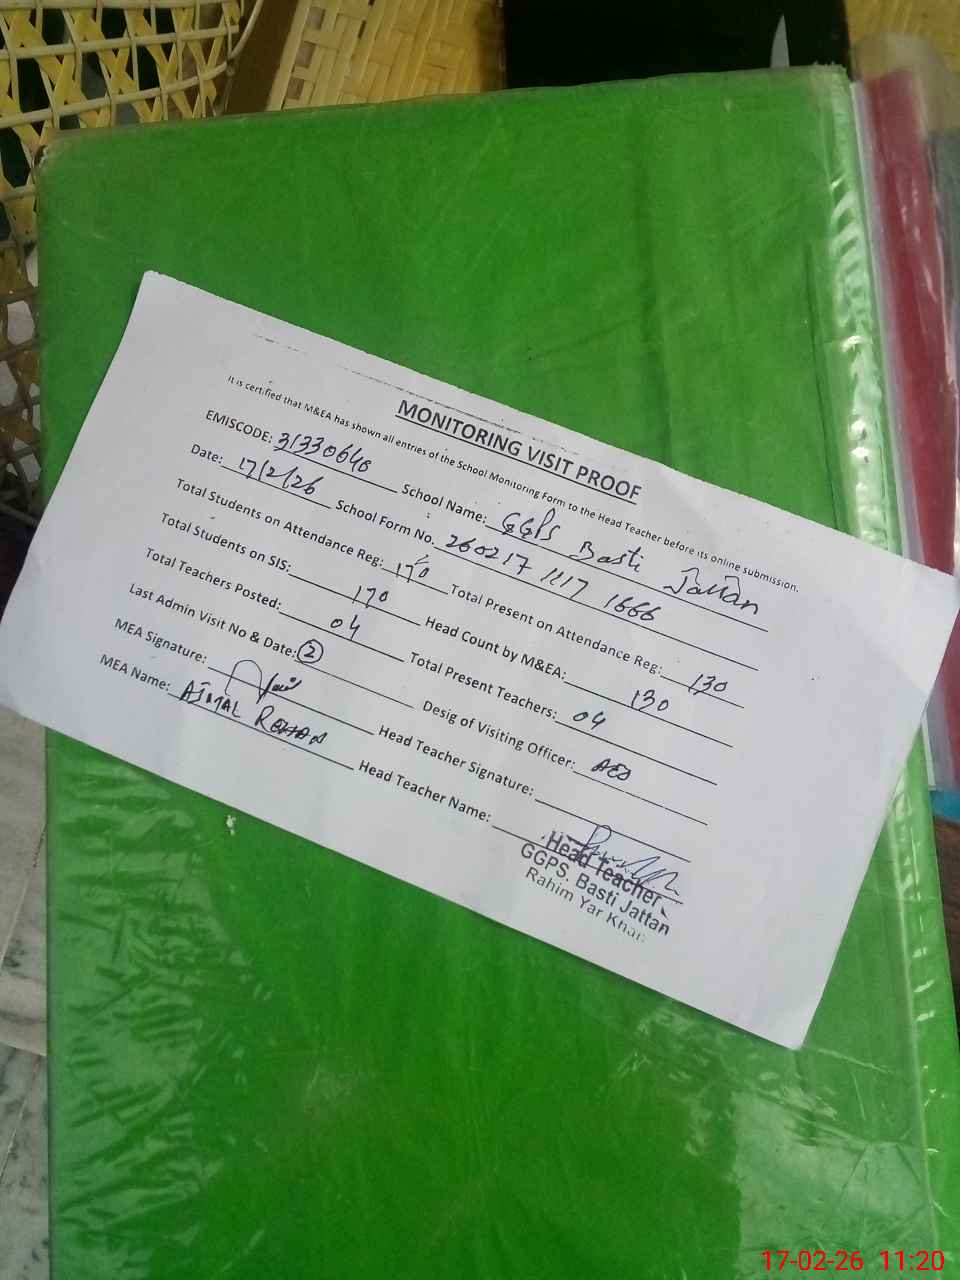 MONITORING VISIT PROOF
It is certified that M&EA has shown all entries of the School Monitoring Form to the Head Teacher before its online submission.
EMISCODE: 31330640 School Name: GGPS Basti Jattan
Date: 17/2/26 School Form No. 260217 1117 1666
Total Students on Attendance Reg: 170 Total Present on Attendance Reg: 130
Total Students on SIS: 170 Head Count by M&EA: 130
Total Teachers Posted: 04 Total Present Teachers: 04
Last Admin Visit No & Date: 2 Desig of Visiting Officer: AEO
MEA Signature: Head Teacher Signature:
MEA Name: AJMAL REHAN Head Teacher Name:
Head Teacher
GGPS, Basti Jattan
Rahim Yar Khan
17-02-26 11:20